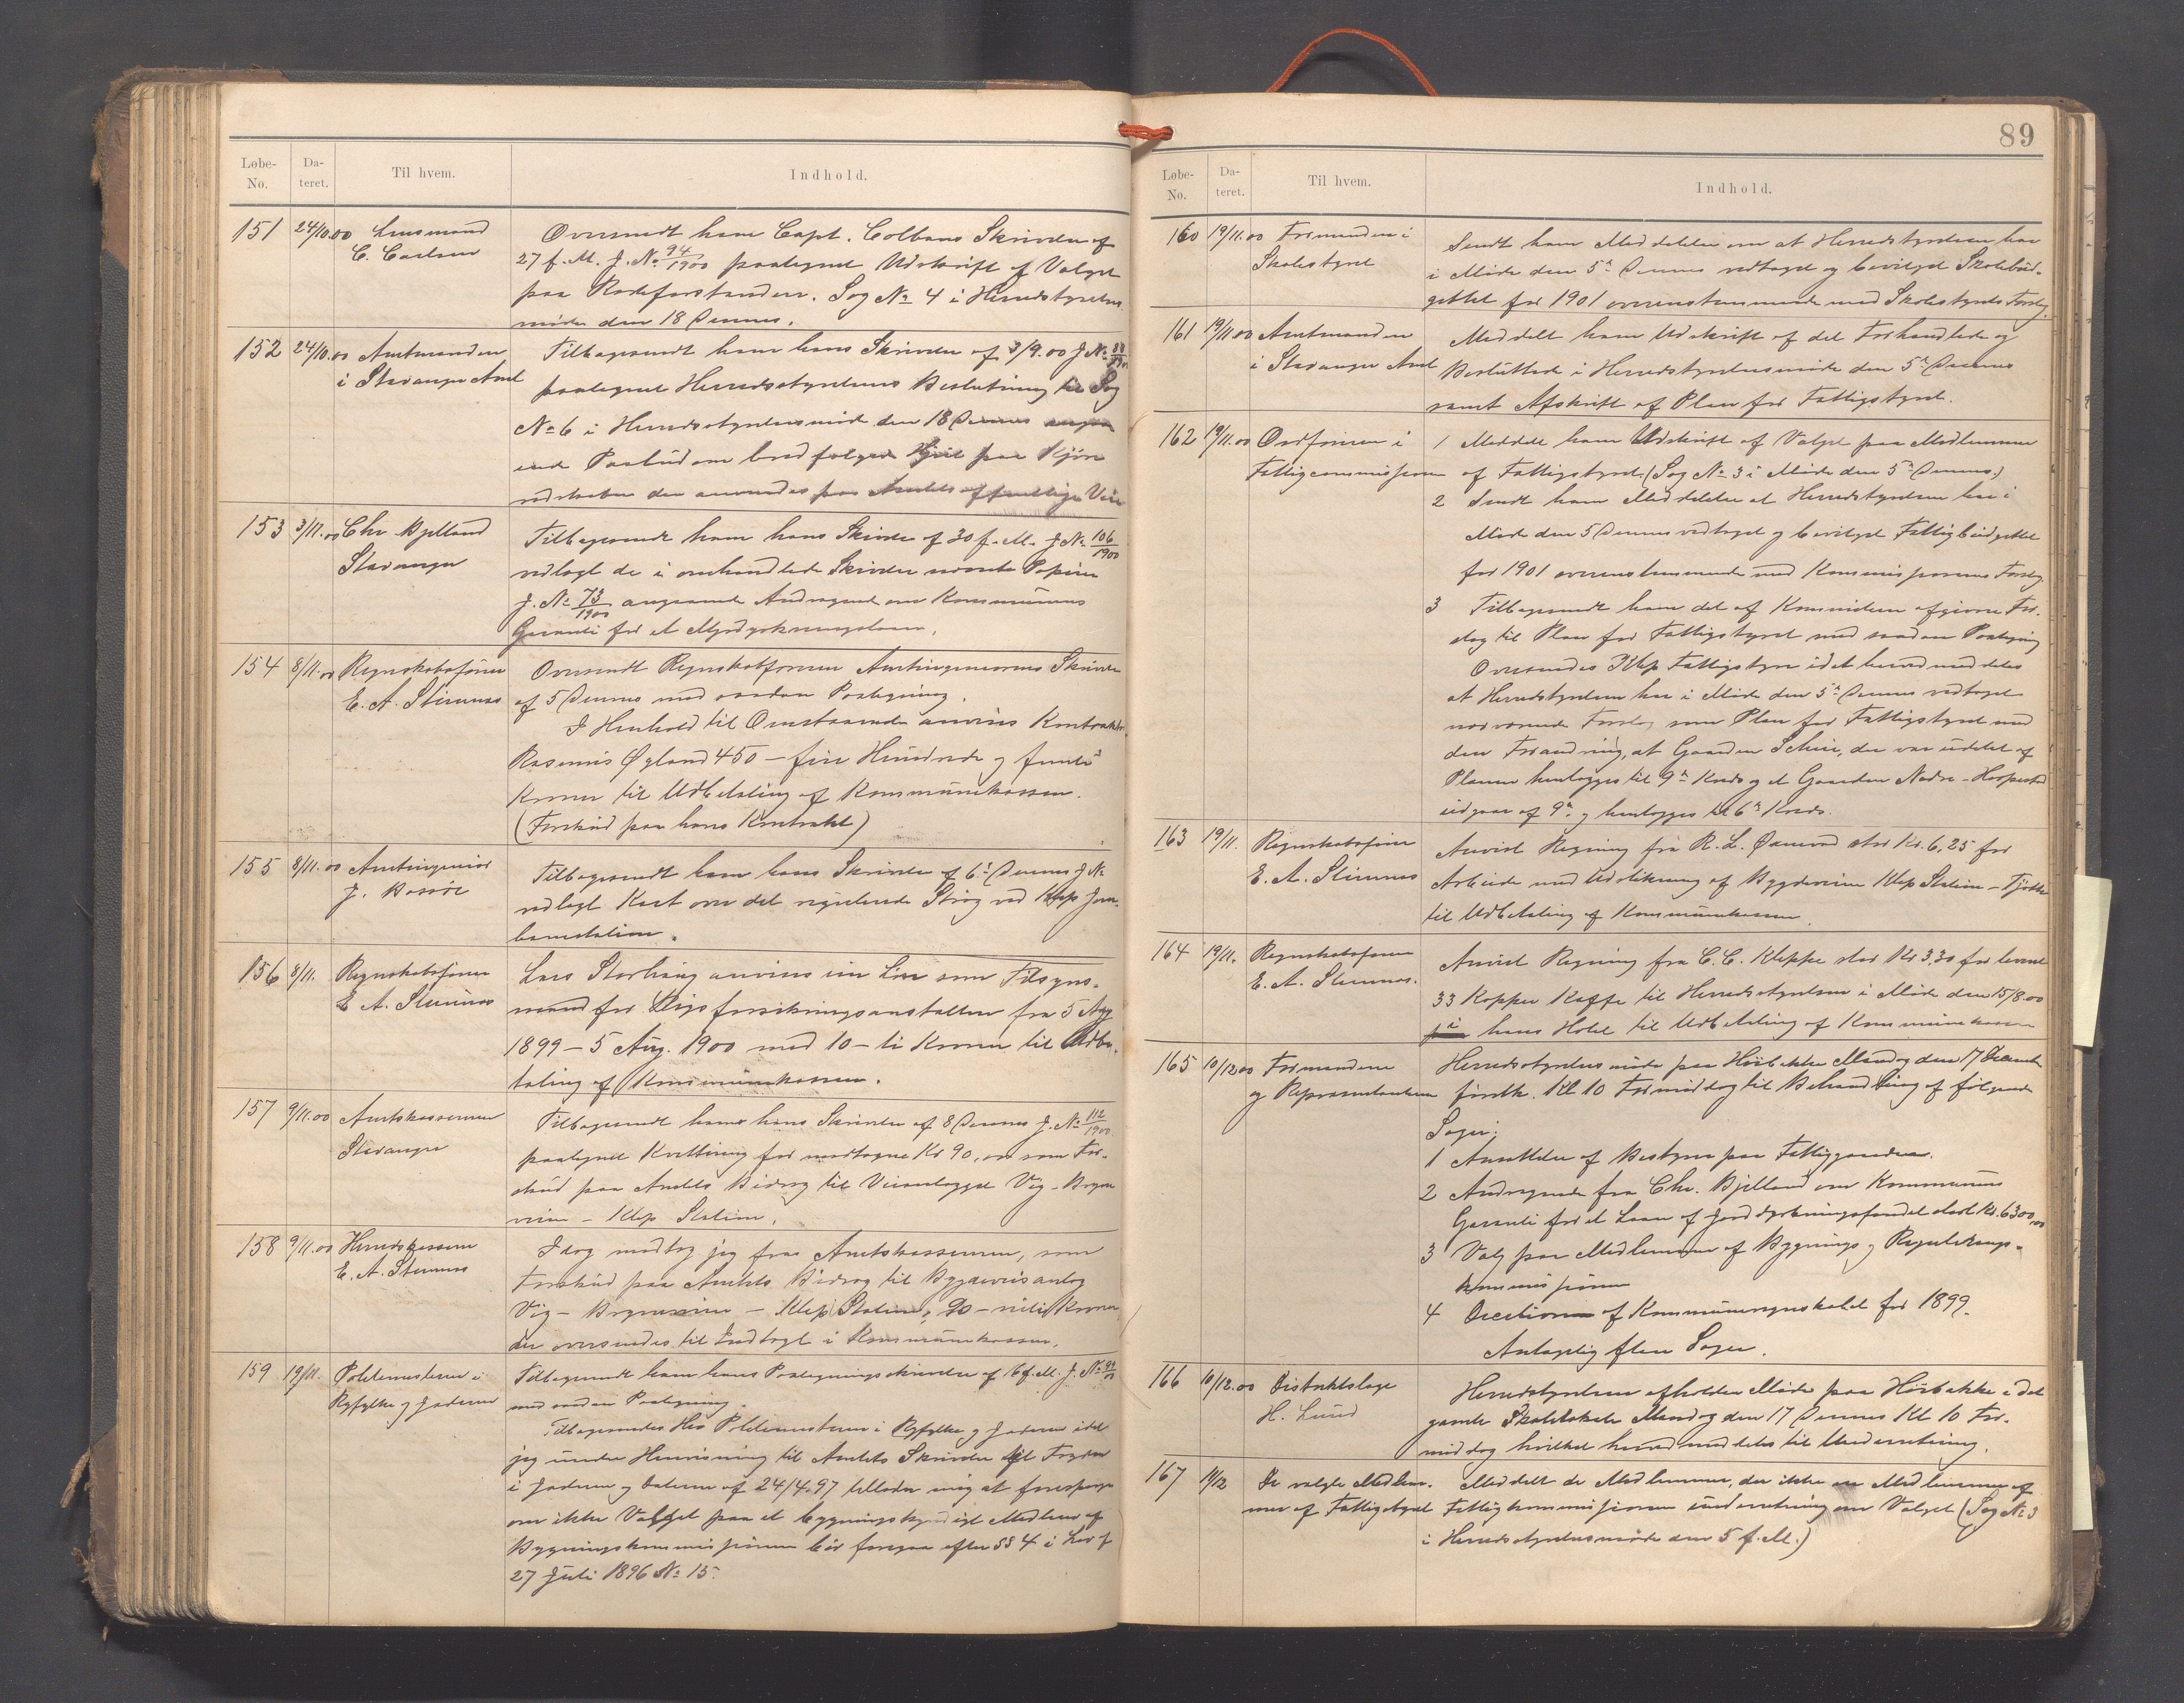 Løbe-No. Dateret. Til hvem. Indhold.
151 24/10.00 Lensmand C. Carlsen
Oversendt ham Capt. Colbans Skrivelse af
27 f. M. J. No 94/1900 paategnet Udskrift af Valget
paa Rodeforstander. Sag No 4 i Herredstyrelses
møde den 18 Dennes.
152 24/10.00 Amtmanden i Stavanger Amt
Tilbagesendt ham hans Skrivelse af 3/9.00 J No
paategnet Herredsstyrelsens Beslutning til Sag
No 6 i Herredsstyrelsesmøde den 18 Dennes
Paabud om bred fælge Hjul paa Kjøre
redskaber der anvendes paa Amtets offentlige Veie
153 3/11.00 Chr Bjelland Stavanger
Tilbagesendt ham hans Skrivelse af 30 f. M. J No 106/1900
vedlagt de i omhandlede Skrivelse nævnte Papirer
J. No 73/1900 angaaende Andragende om Kommunens
Garanti for et Myrdyrkningslaan.
154 8/11.00 Regnskabsfører E. A. Stimnes
Oversendt Regnskabsføreren Amtsingeniørens Skrivelse
af 5 Dennes med saadan Paategning.
I Henhold til Omstaaende anvises Kontraktør
Rasmus Øgland 450 – fire Hundrede og femti
Kroner til Udbetaling af Kommunekassen.
(Forskud paa hans Kontrakt)
155 8/11.00 Amtsingeniør J.
Tilbagesendt ham hans Skrivelse af 6te Dennes J No
vedlagt Kart over det regulerede Strøg ved Klep Jern-
banestation.
156 8/11. Regnskabsfører E A. Stimnes
Lars Storhaug anvises sin Løn som Tilsyns-
mand for Rigsforsikringsanstalten fra 5 Aug
1899 – 5 Aug. 1900 med 10 – ti Kroner til Udbe-
taling af Kommunekassen.
157 9/11.00 Amtskassereren Stavanger
Tilbagesendt ham hans Skrivelse af 8 Dennes J. No 112/1900
paategnet Kvittering for modtagne Kr 90,00 som For-
skud paa Amtets Bidrag til Veianlægget Vig – Bryne
veien – Klep Station.
158 9/11.00 Herredskasserer E. A. Stimnes
I dag modtog jeg fra Amtskassereren, som
Forskud paa Amtets Bidrag til Bygdeveisanlæg
Vig – Bryneveien – Klep Station, 90 – nitti Kroner
der oversendes til Indtægt i Kommunekassen.
159 19/11. Politimesteren i Ryfylke og Jæderen
Tilbagesendt ham hans Paategningsskrivelse af 16 f. M. J. No
med saadan Paategning.
Tilbagesendes Hr Politimesteren i Ryfylke og Jæderen idet
jeg under Henvisning til Amtets Skrivelse til Fogden
i Jæderen og Dalerne af 24/4.97 tillader mig at forespørge
om ikke Valget paa et bygningskyndigt Medlem af
Bygningskommissionen bør foregaa efter §§ 4 i Lov af
27 Juli 1896 No 15.
89
Løbe-No. Dateret. Til hvem. Indhold.
160 19/11.00 Formanden i Skolestyret
Sendt ham Meddelelse om at Herredstyrelsen har
i Møde den 5te Dennes vedtaget og bevilget Skolebud-
gettet for 1901 overensstemmende med Skolestyrets Forslag.
161 19/11.00 Amtmanden i Stavanger Amt
Meddelt ham Udskrift af det Forhandlede og
Besluttede i Herredstyrelsesmøde den 5te Dennes
samt Afskrift af Plan for Fattigstyret.
162 19/11.00 Ordføreren i Fattigcommissionen
1 Meddelt ham Udskrift af Valget paa Medlemmer
af Fattigstyret (Sag No 3 i Møde den 5te Dennes)
2 Sendt ham Meddelelse at Herredstyrelsen har i
Møde den 5 Dennes vedtaget og bevilget Fattigbudgettet
for 1901 overensstemmende med Kommissionens Forslag.
3 Tilbagesendt ham det af Komiteen afgivne For-
slag til Plan for Fattigstyret med saadan Paategning
Oversendes Klep Fattigstyre idet herved meddeles
at Herredstyrelsen har i Møde den 5te Dennes vedtaget
nærværende Forslag som Plan for Fattigstyret med
den Forandring, at Gaarden, der var udelat af
Planen henlægges til 9de Kreds og at Gaarden Nedre-
udgaar af 9de og henlægges til 6te Kreds.
163 19/11. Regnskabsfører E. A. Stimnes
Anvist Regning fra R. L. stor Kr. 6,25 for
Arbeide med Udstikning af Bygdeveien Klep Station – Tjøtte
til Udbetaling af Kommunekassen.
164 19/11. Regnskabsfører E. A. Stimnes.
Anvist Regning fra C. C. Kleppe stor Kr 3,30 for leveret
33 Kopper Kaffe til Herredsstyrelsen i Møde den 15/8.00
i hans Hotel til Udbetaling af Kommunekassen
165 10/12.00 Formændene og Repræsentanterne
Herredsstyrelsesmøde paa Hørbakke Mandag den 17 Decemb
førstk. Kl 10 Formiddag til Behandling af følgende
Sager:
1 Ansættelse af Bestyrer paa Fattiggaarden.
2 Andragende fra Chr. Bjelland om Kommunens
Garanti for et Laan af Jorddyrkningsfondet stort Kr. 6300,00
3 Valg paa Medlemmer af Bygnings og Regulerings-
kommissionen
4 Decision af Kommuneregnskabet for 1899.
Antagelig flere Sager.
166 10/12.00 Distriktslæge H. Lund
Herredsstyrelsen afholder Møde paa Hørbakke i det
gamle Skolelokale Mandag den 17 Dennes Kl 10 For-
middag hvilket herved meddeles til Underretning.
167 11/12 De valgte Medlemmer af Fattigstyret
Meddelt de Medlemmer, der ikke er Medlemmer af
Fattigkommissionen underretning om Valget (Sag No 3
i Herredsstyrelsesmøde den 5 f. M.)